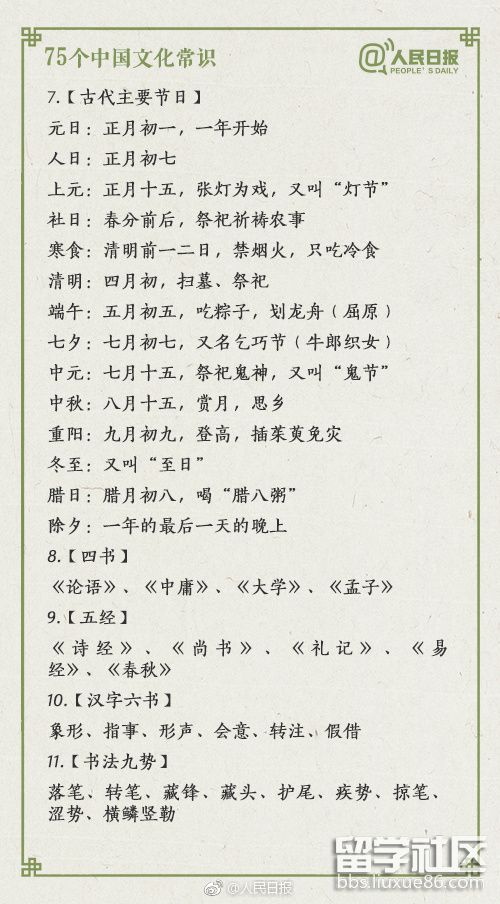 75个中国文化常识
@人民日报
PEOPLE'S DAILY
7.【古代主要节日】
元日：正月初一，一年开始
人日：正月初七
上元：正月十五，张灯为戏，又叫“灯节”
社日：春分前后，祭祀祈祷农事
寒食：清明前一二日，禁烟火，只吃冷食
清明：四月初，扫墓、祭祀
端午：五月初五，吃粽子，划龙舟（屈原）
七夕：七月初七，又名乞巧节（牛郎织女）
中元：七月十五，祭祀鬼神，又叫“鬼节”
中秋：八月十五，赏月，思乡
重阳：九月初九，登高，插茱萸免灾
冬至：又叫“至日”
腊日：腊月初八，喝“腊八粥”
除夕：一年的最后一天的晚上
8.【四书】
《论语》、《中庸》、《大学》、《孟子》
9.【五经】
《诗经》、《尚书》、《礼记》、《易
经》、《春秋》
10.【汉字六书】
象形、指事、形声、会意、转注、假借
11.【书法九势】
落笔、转笔、藏锋、藏头、护尾、疾势、掠笔、
涩势、横鳞竖勒
留学社区
bbs.liuxue86.com
@人民日报